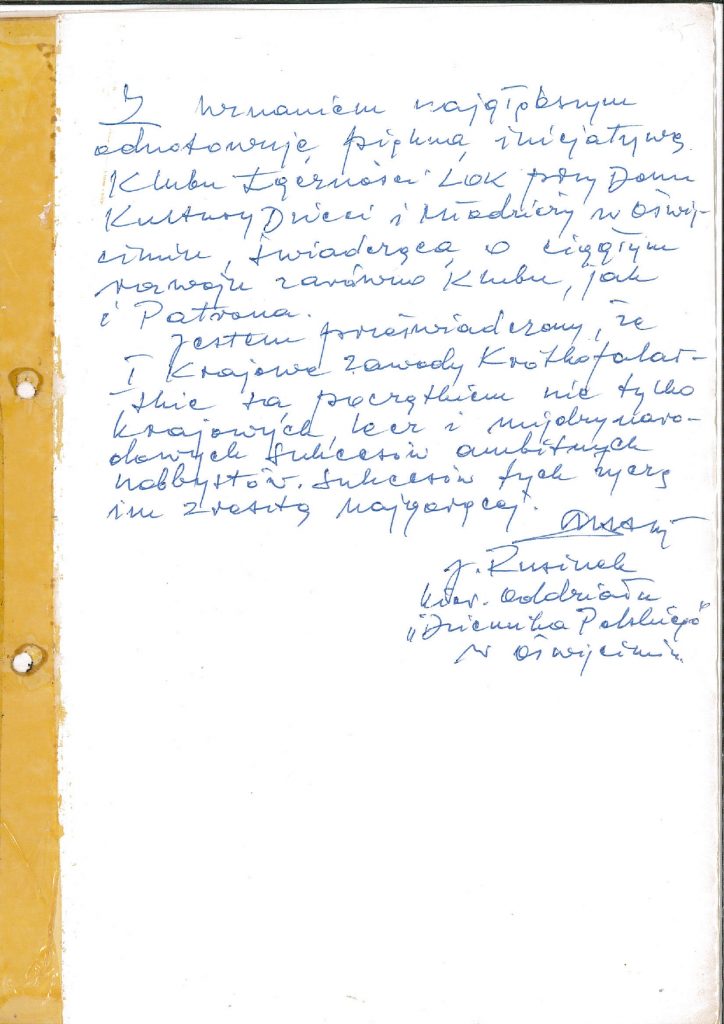 Z uznaniem najgłębszym
odnotowuję piękną inicjatywę
Klubu Łączności LOK przy Domu
Kultury Dzieci i Młodzieży w Oświę-
cimiu, świadczącą o ciągłym
rozwoju zarówno Klubu, jak
i Patrona.
Jestem przeświadczony, że
I Krajowe Zawody Krótkofalar-
skie są początkiem nie tylko
krajowych, lecz i międzynaro-
dowych sukcesów ambitnych
hobbystów. Sukcesów tych życzę
im zresztą najgoręcej.
J. Rusinek
kier. oddziału
„Dziennika Polskiego"
w Oświęcimiu.